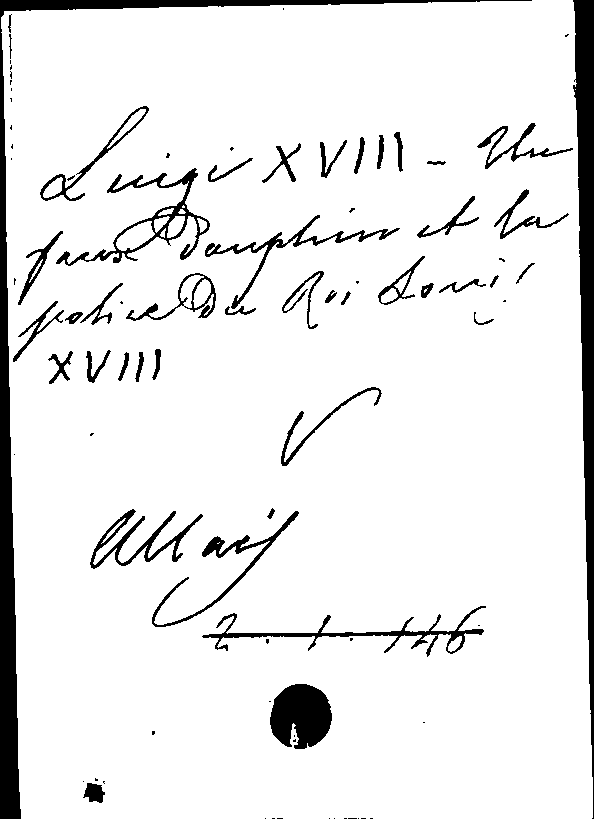 Luigi XVIII - Un
faux Dauphin et la
police du Roi Louis
XVIII
V
Allais
2 . 1 . 146